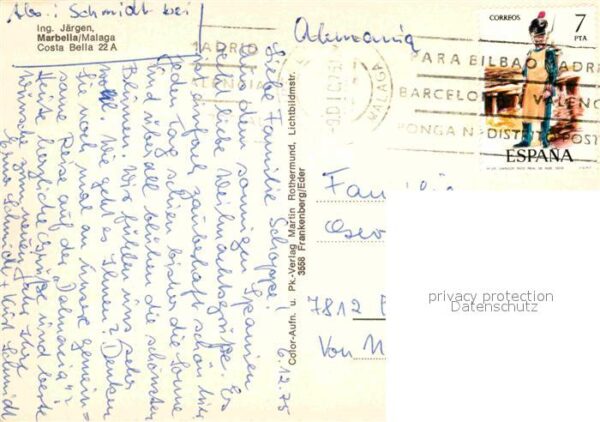 Abs.: Schmidt bei
Ing. Järgen,
Marbella/Malaga
Costa Bella 22 A
Alemania
CORREOS
7
PTA
ESPAÑA
PARA BILBAO
BARCELONA
VALENCIA
PONGA Nº DISTRITO POSTAL
MALAGA
6.12.75
Liebe Familie Schoppe!
Aus dem sonnigen Spanien
liebe Weihnachtsgrüße. Es
ist einfach zauberhaft schön hier
jeden Tag scheint bisher die Sonne
und überall blühen die schönsten
Blumen. Wir fühlen uns sehr
wohl. Wie geht es Ihnen? Denken
Sie noch an unsere gemein=
same Reise auf der "Dalmacia"?
Herzliche Grüße und beste
Wünsche zum neuen Jahr Ihre
Schmidt + Kurt Schmidt
Color-Aufn. u. Pk.-Verlag Martin Rothermund, Lichtbildmstr.
3558 Frankenberg/Eder
Familie
7812
Von
privacy protection
Datenschutz